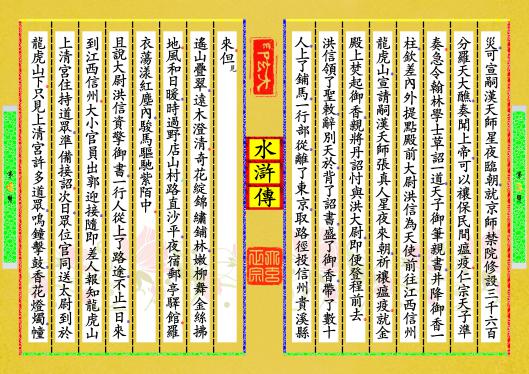 災可宣嗣漢天師星夜臨朝就京師禁院修設三千六百
分羅天大醮奏聞上帝可以禳保民間瘟疫仁宗天子準
奏急令翰林學士草詔一道天子御筆親書并降御香一
柱欽差內外提點殿前太尉洪信為天使前往江西信州
龍虎山宣請嗣漢天師張真人星夜來朝祈禳瘟疫就金
殿上焚起御香親將丹詔付與洪太尉即便登程前去
洪信領了聖敕辭別天子背了詔書盛了御香帶了數十
人上了鋪馬一行部從離了東京取路徑投信州貴溪縣
水滸傳
來但見
遙山疊翠遠木澄清奇花綻錦繡鋪林嫩柳舞金絲拂
地風和日暖時過野店山村路直沙平夜宿郵亭驛館羅
衣蕩漾紅塵內駿馬驅馳紫陌中
且說太尉洪信賫擎御書一行人從上了路途不止一日來
到江西信州大小官員出郭迎接隨即差人報知龍虎山
上清宮住持道眾準備接詔次日眾位官同送太尉到於
龍虎山下只見上清宮許多道眾鳴鐘擊鼓香花燈燭幢